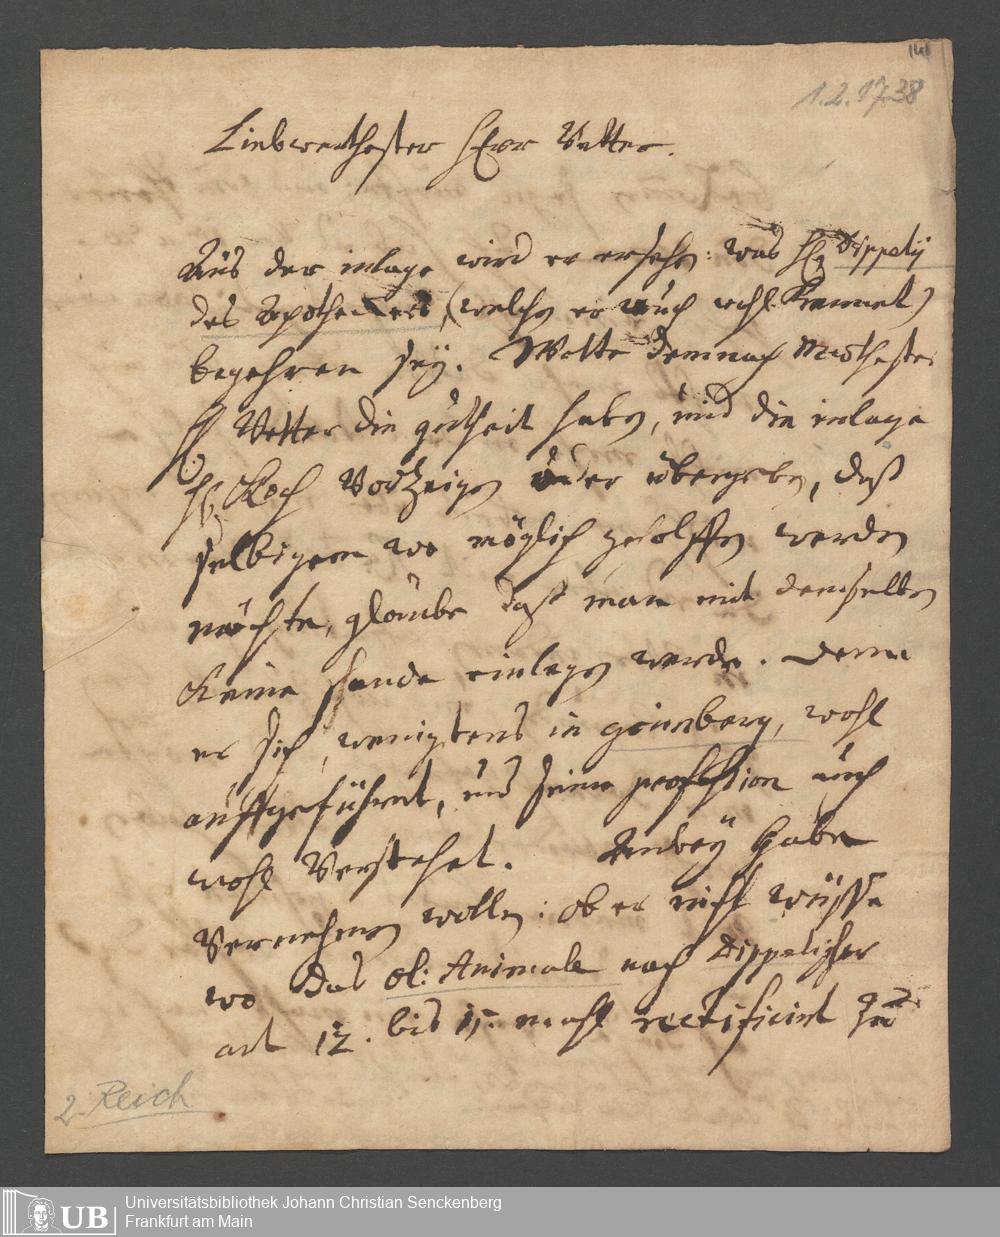 141
1.2.1738
Liebwerthester Herr Vetter.
Aus der inlage wird er ersehen: was H. Dippely
des Apotheckers, (welchen er auch wohl kennet)
begehren sey. Wolte demnach werthester
H Vetter die gutheit haben, und die inlage
H. Koch Vorzeigen oder übergeben, daß
selbigem wo möglich geholffen werden
möchte, glaube daß man mit demselben
keine schande einlegen werde. denn
er sich, wenigstens in grünberg, wohl
auffgeführet, und seine profession auch
wohl Verstehet. Anbey habe
Vernehmen wollen: ob er nicht wüsste
wo das ol: Animale nach Dippelischer
art 12. bis 15. mahl rectificirt zu
2 Reich
UB Universitätsbibliothek Johann Christian Senckenberg
Frankfurt am Main